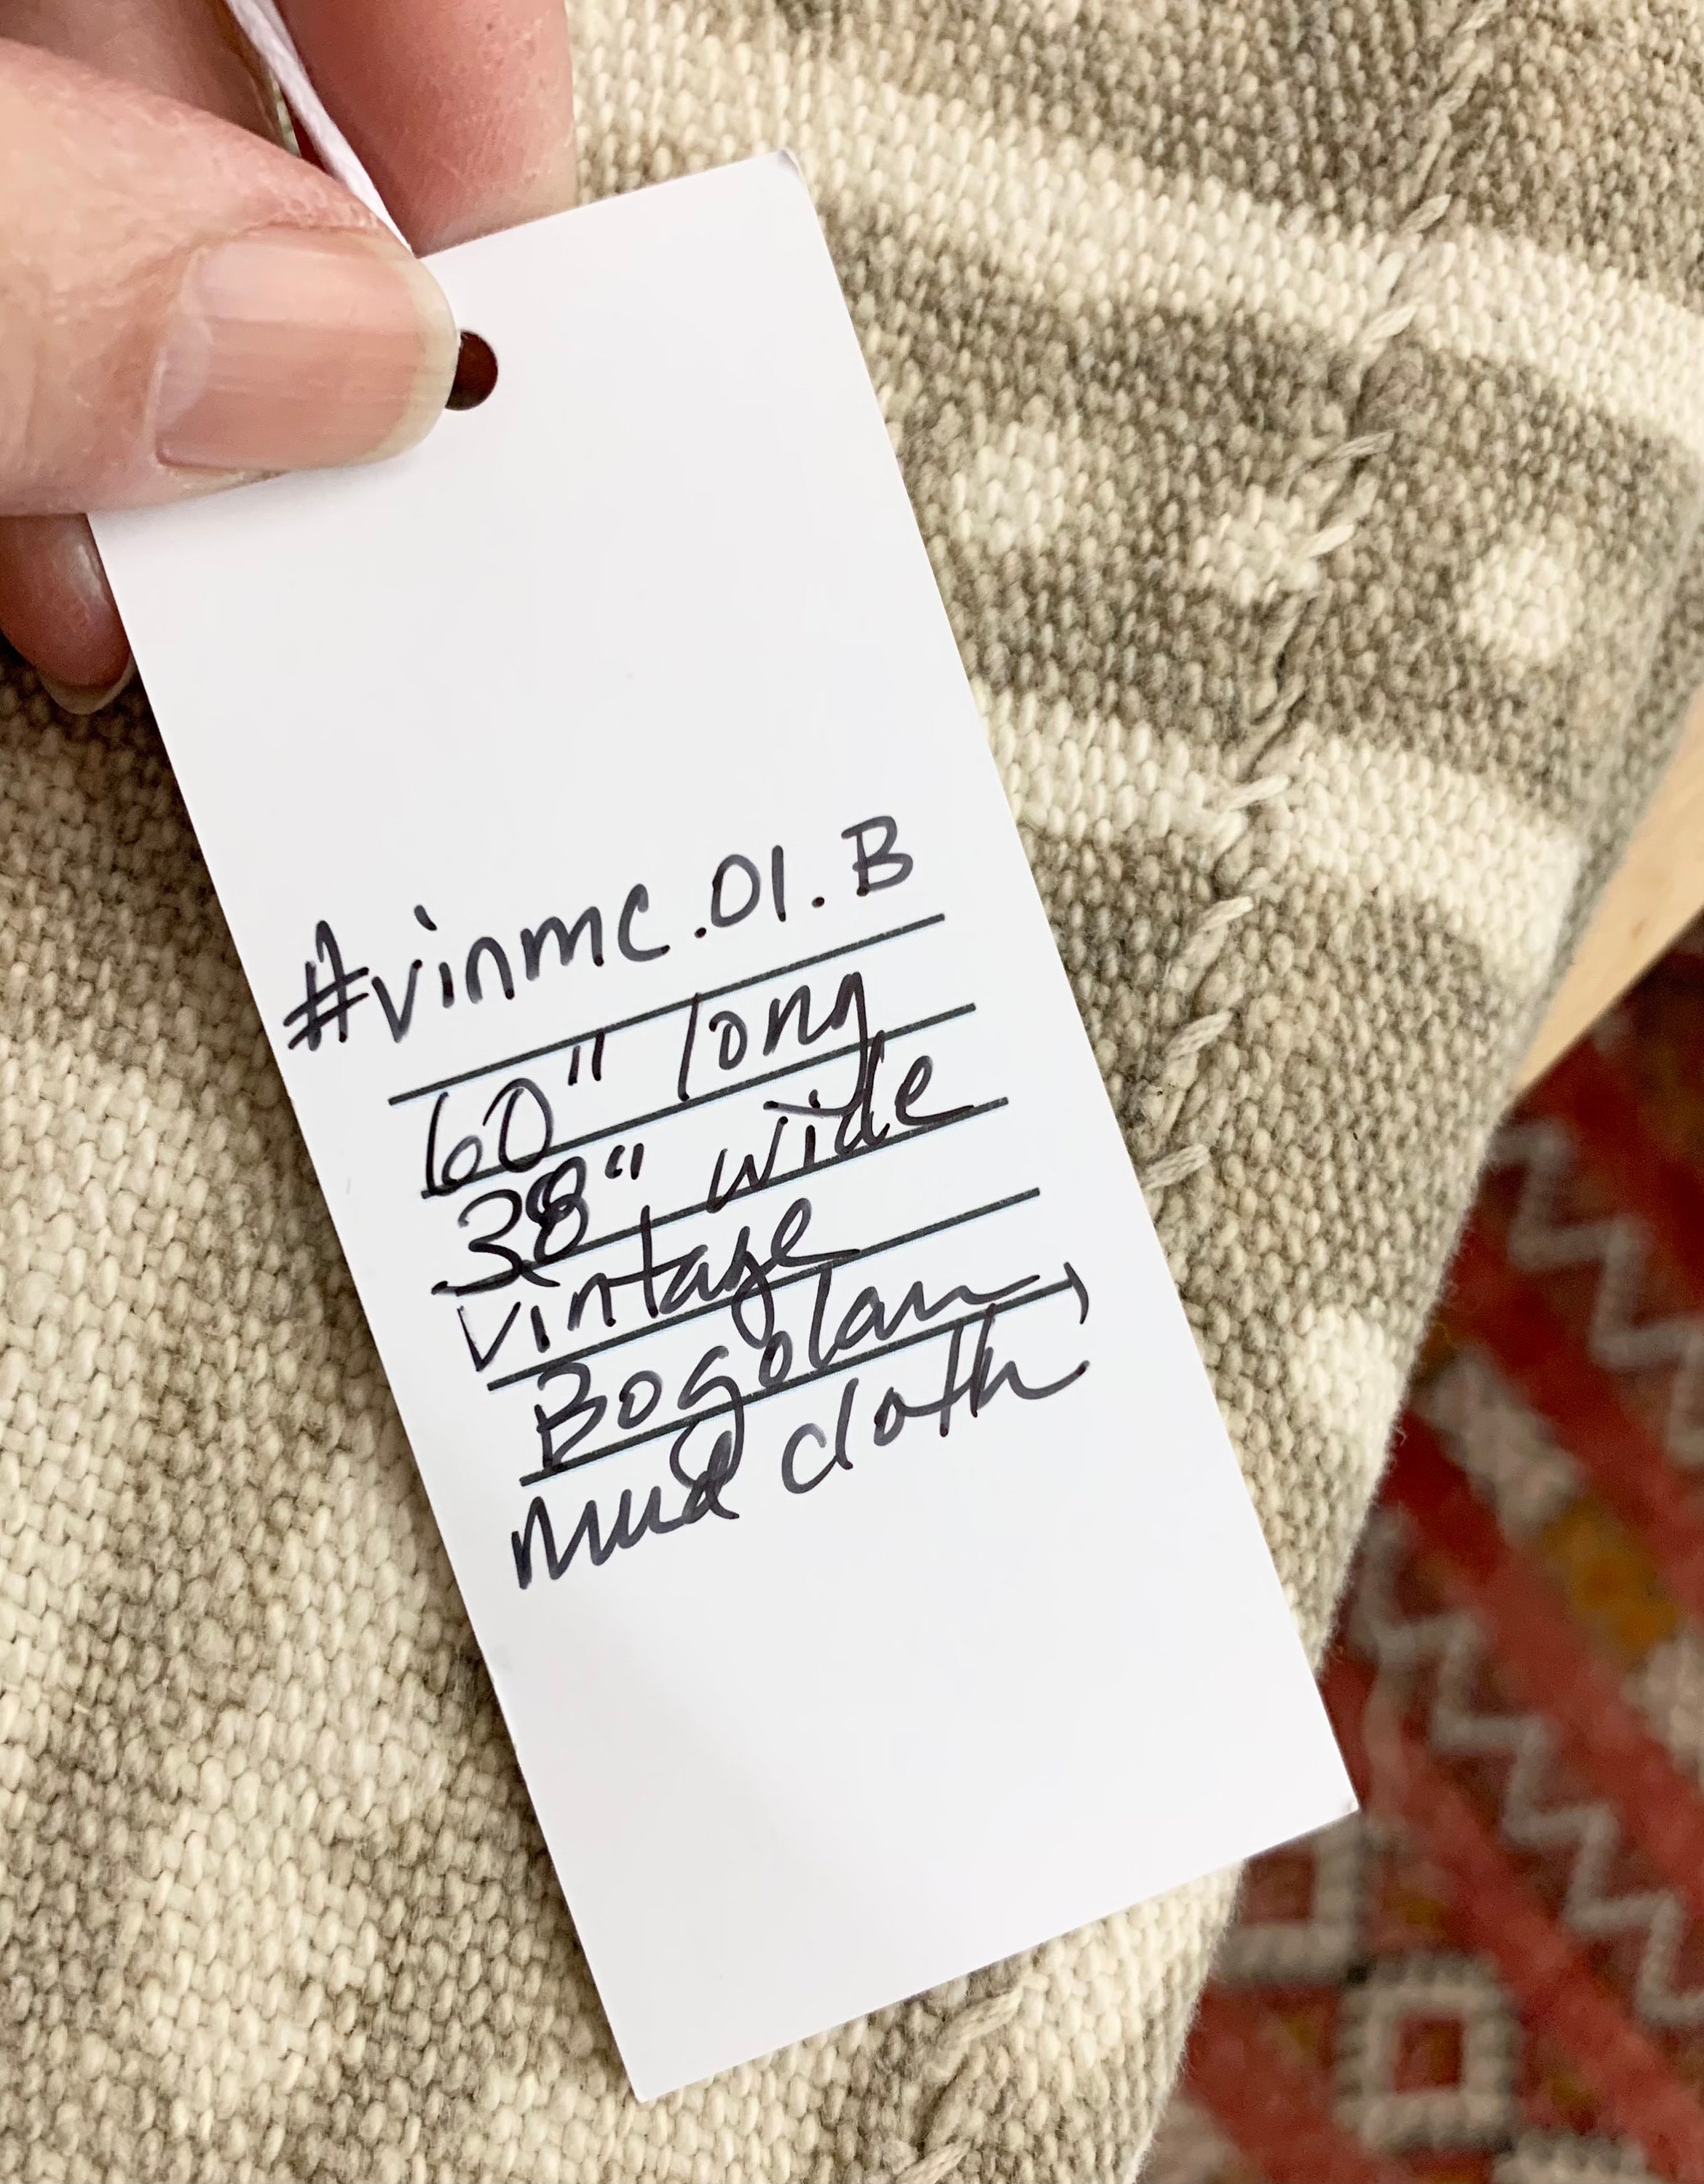 #vinmc.01.B
60" long
38" wide
vintage
Bogolan,
mud cloth